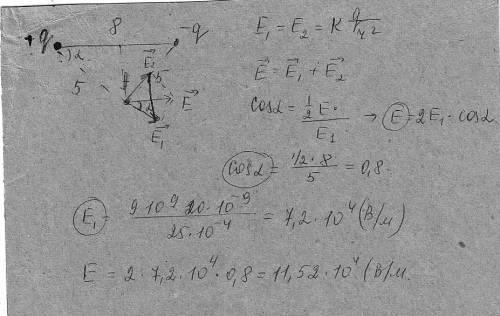 +q 8 -q
α
5 5
E⃗₂
α E⃗
E⃗₁
E₁ = E₂ = K q/r²
E⃗ = E⃗₁ + E⃗₂
cosα = ½E / E₁ → E = 2E₁·cosα
cosα = ½·8 / 5 = 0,8.
E₁ = 9·10⁹·20·10⁻⁹ / 25·10⁻⁴ = 7,2·10⁴ (В/м)
E = 2·7,2·10⁴·0,8 = 11,52·10⁴ (В/м.